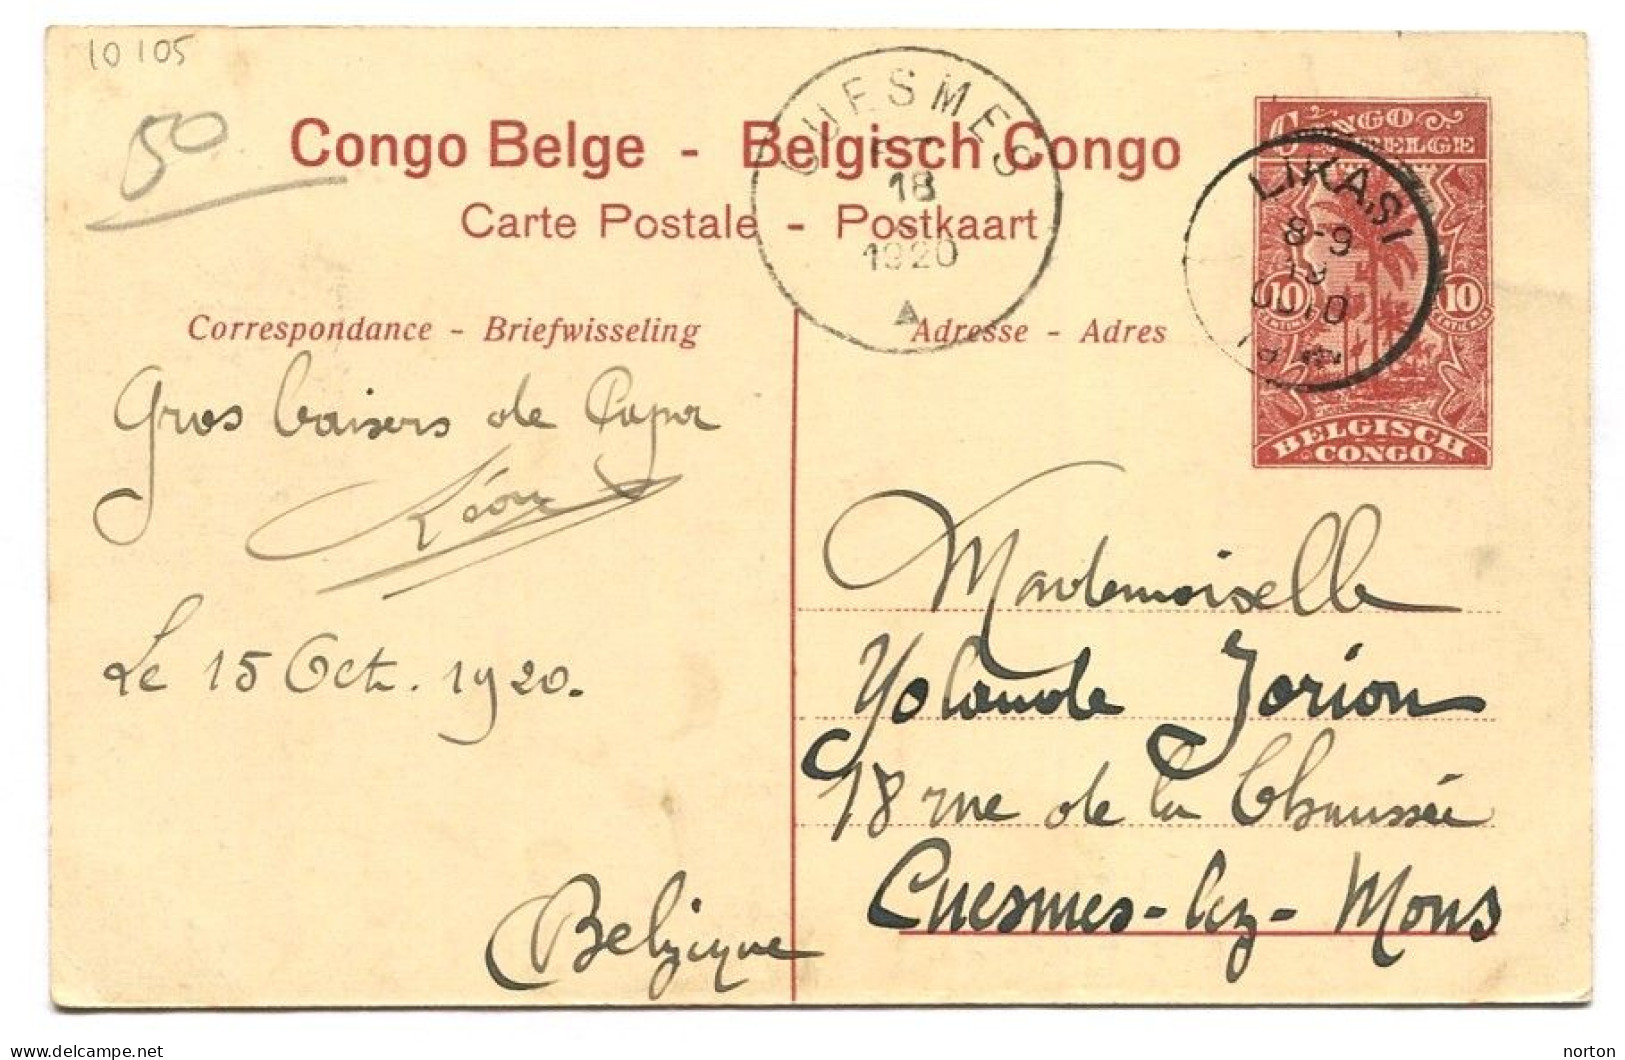 10 105
50
Congo Belge - Belgisch Congo
Carte Postale - Postkaart
CUESMES
18
1920
CONGO
BELGE
LIKASI
8-9
19
10 10
BELGISCH
CONGO
Correspondance - Briefwisseling
Adresse - Adres
Gros baisers de Papa
Léon
Le 15 Oct. 1920.
Mademoiselle
Yolande Jorion
18 rue de la Chaussée
Cuesmes-lez-Mons
Belgique
delcampe.net
norton